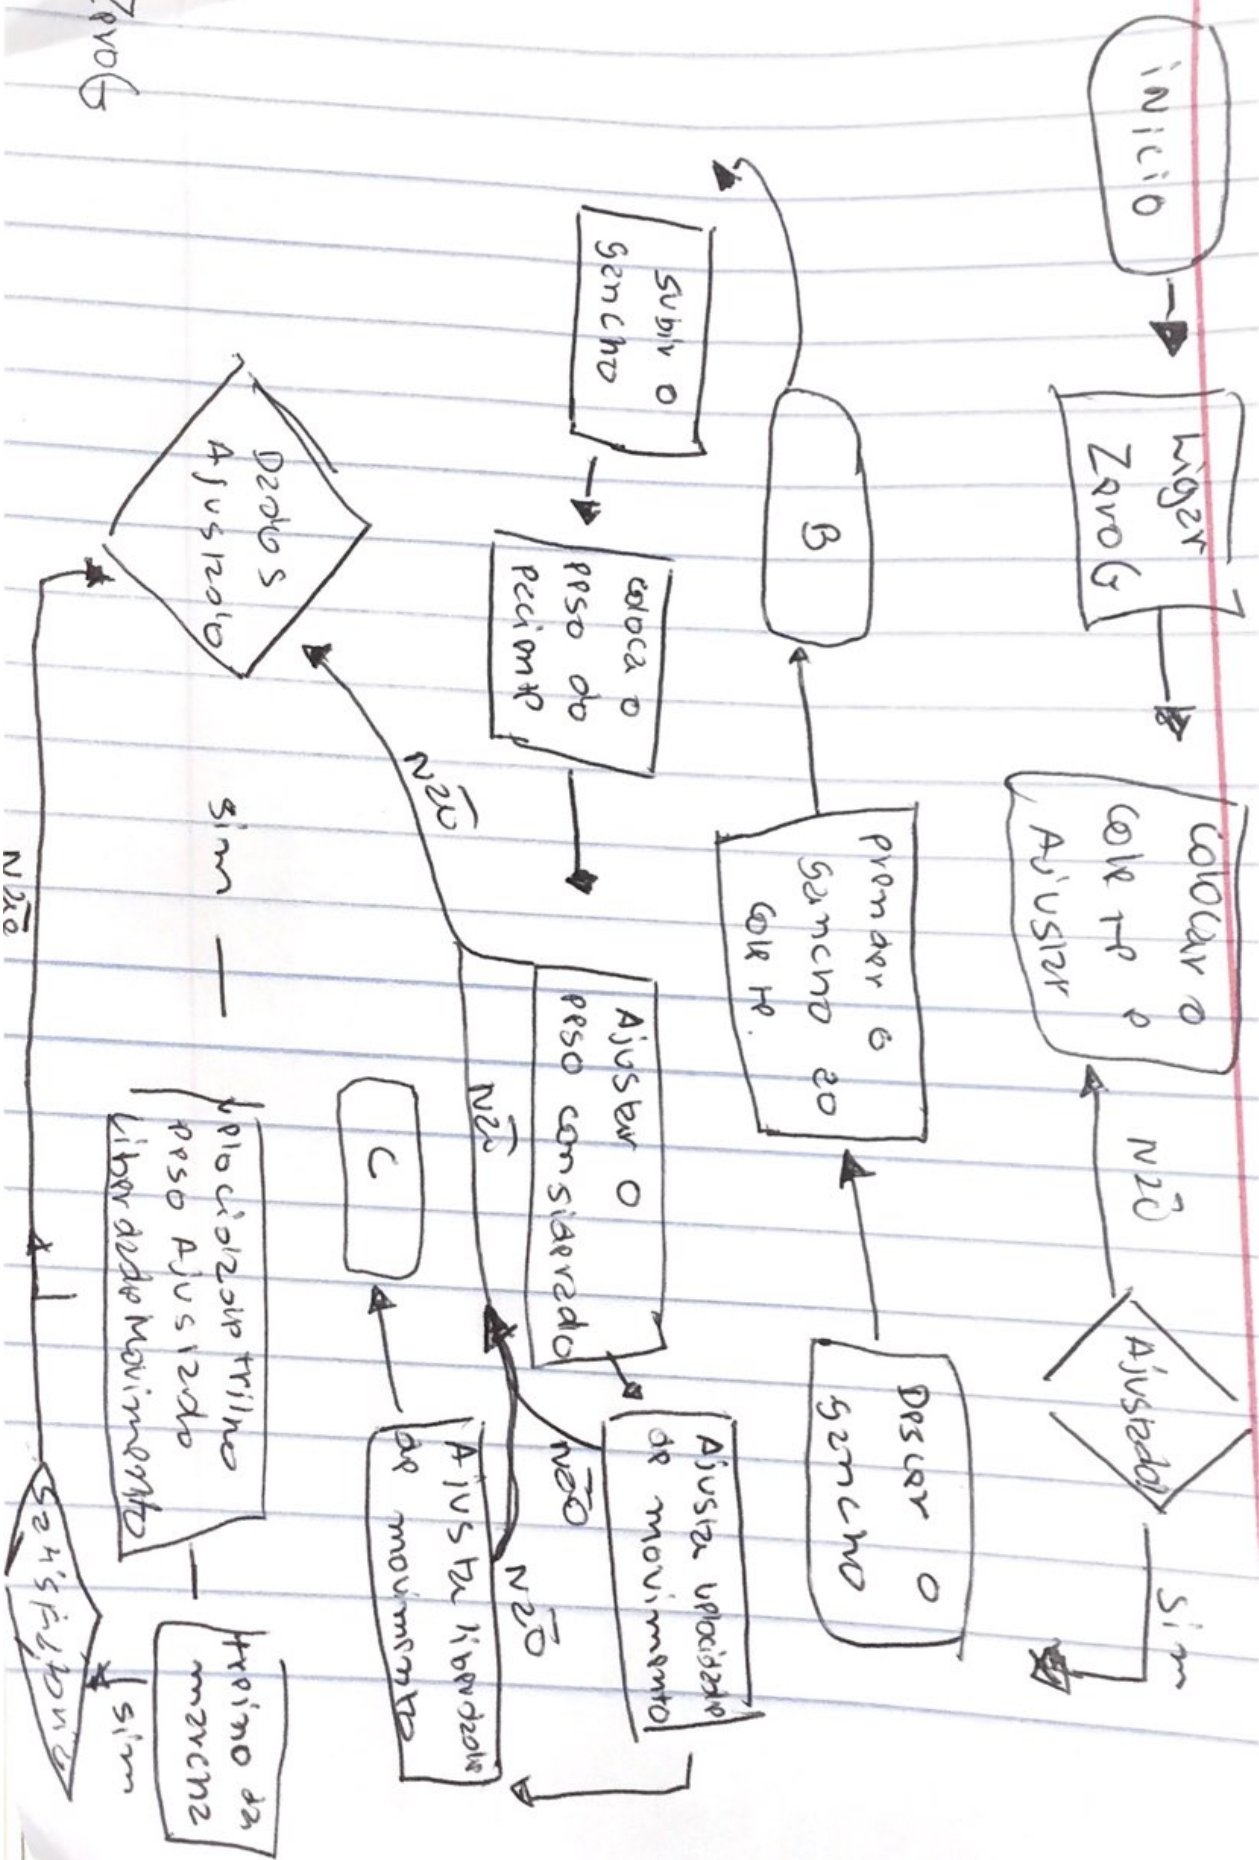 inicio
Ligar
ZeroG
Colocar o
Colete e
Ajustar
Não
Ajustado?
Sim
B
prender o
gancho ao
Colete.
Descer o
gancho
Subir o
gancho
coloca o
peso do
paciente
Ajustar o
peso considerado
Ajusta velocidade
de movimento
Não
Não
Não
Não
C
Ajusta liberdade
de movimento
Dados
Ajustado
Sim
velocidade trilho
peso Ajustado
liberdade Movimento
treino da
marcha
sim
Não
ZeroG